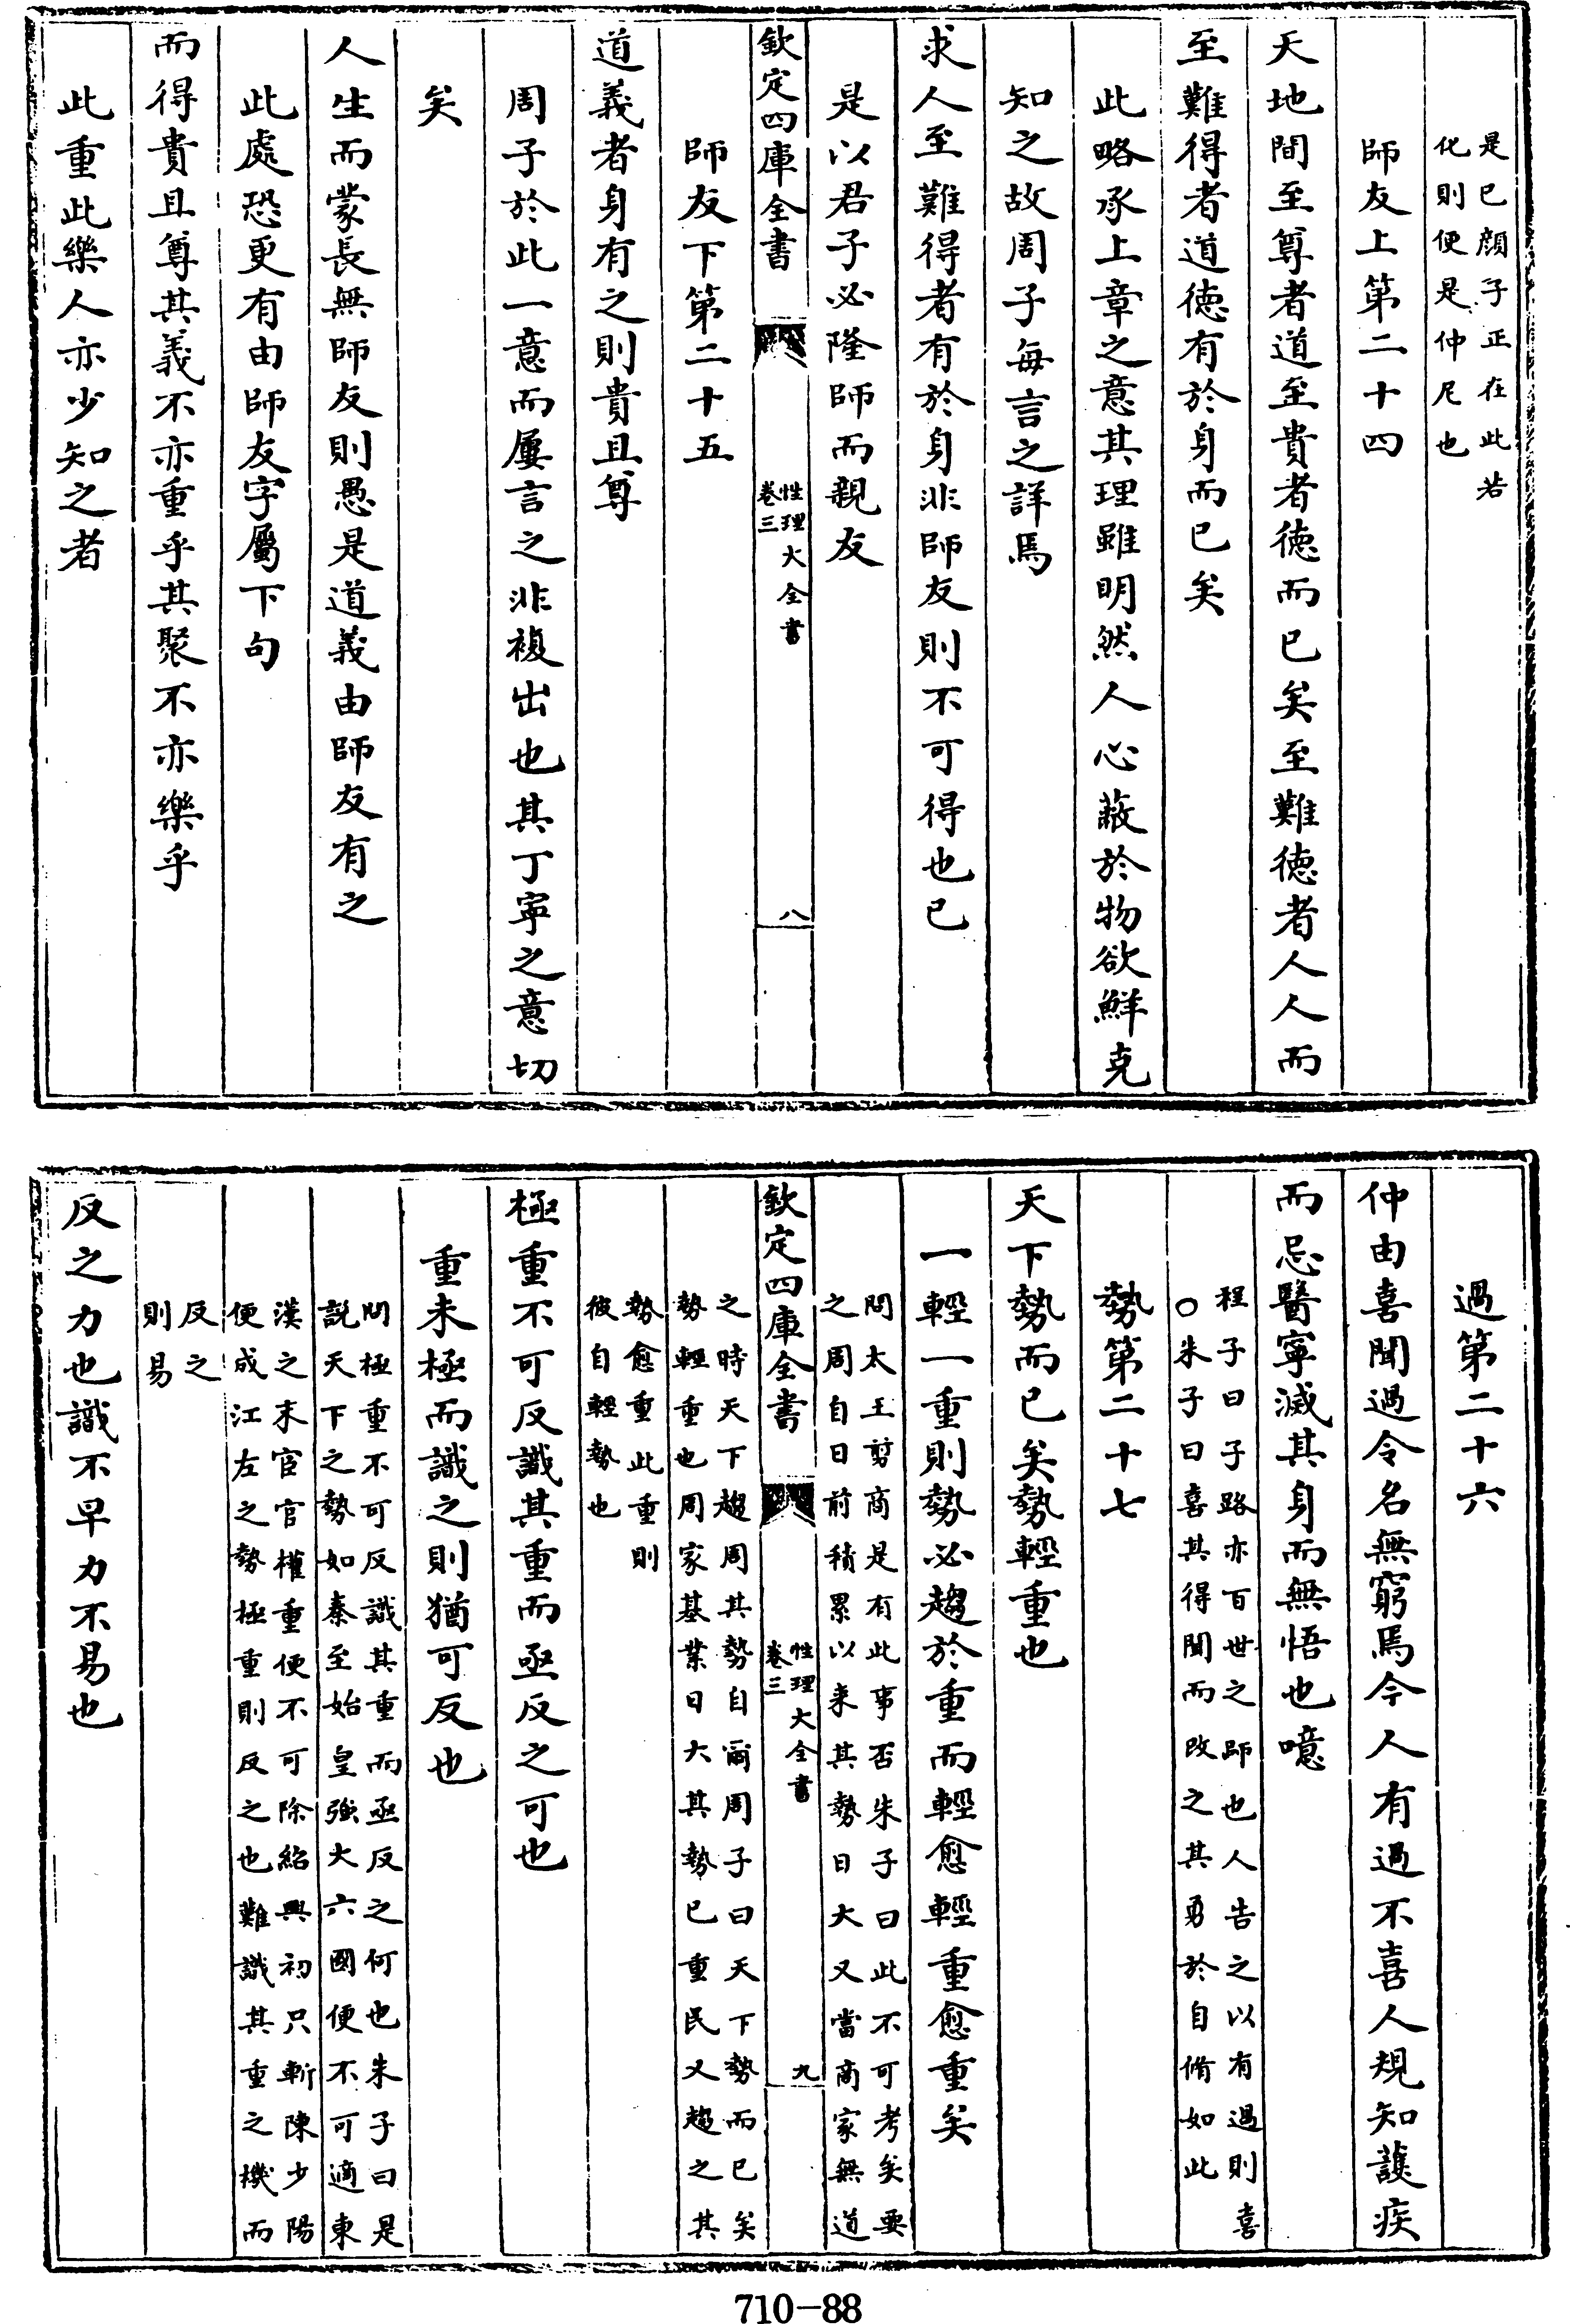 是已顔子正在此若
化則便是仲尼也
師友上第二十四
天地間至尊者道至貴者徳而已矣至難徳者人人而
至難得者道徳有於身而已矣
此略承上章之意其理雖明然人心蔽於物欲鮮克
知之故周子每言之詳焉
求人至難得者有於身非師友則不可得也已
是以君子必隆師而親友
欽定四庫全書
性理大全書
卷三
八
師友下第二十五
道義者身有之則貴且尊
周子於此一意而屢言之非複出也其丁寧之意切
矣
人生而蒙長無師友則愚是道義由師友有之
此處恐更有由師友字屬下句
而得貴且尊其義不亦重乎其聚不亦樂乎
此重此樂人亦少知之者
過第二十六
仲由喜聞過令名無窮焉今人有過不喜人規知護疾
而忌醫寧滅其身而無悟也噫
程子曰子路亦百世之師也人告之以有過則喜
○朱子曰喜其得聞而改之其勇於自脩如此
勢第二十七
天下勢而已矣勢輕重也
一輕一重則勢必趨於重而輕愈輕重愈重矣
問太王剪商是有此事否朱子曰此不可考矣要
之周自日前積累以来其勢日大又當商家無道
欽定四庫全書
性理大全書
卷三
九
之時天下趨周其勢自爾周子曰天下勢而已矣
勢輕重也周家基業日大其勢已重民又趨之其
勢愈重此重則
彼自輕勢也
極重不可反識其重而亟反之可也
重未極而識之則猶可反也
問極重不可反識其重而亟反之何也朱子曰是
説天下之勢如秦至始皇強大六國便不可適東
漢之末宦官權重便不可除紹興初只斬陳少陽
便成江左之勢極重則反之也難識其重之機而
反之
則易
反之力也識不早力不易也
710-88